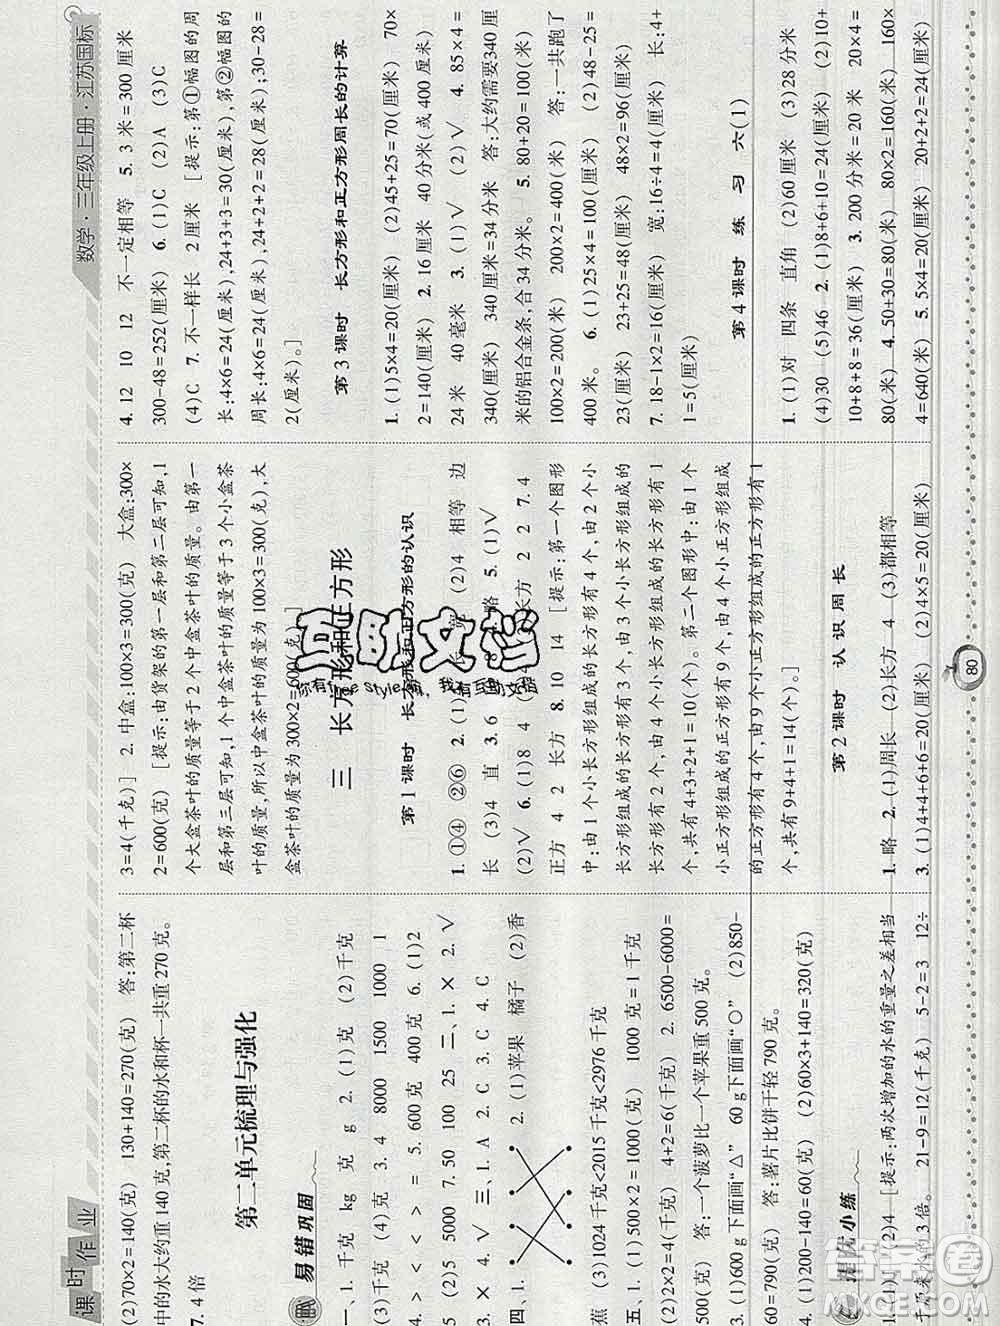 课时作业
(2)70×2=140(克) 130+140=270(克) 答:第二杯
中的水大约重140克,第二杯的水和杯一共重270克。
7. 4倍
第二单元梳理与强化
易错巩固
一、1. 千克 kg 克 g 2. (1)克 (2)千克
(3)千克 (4)克 3. 4 8000 1500 1000 1
4. > < < > = 5. 600克 400克 6. (1)2
(2)5 5000 7. 50 100 25 二、1. × 2. √
3. × 4. √ 三、1. A 2. C 3. C 4. C
四、1. 2. (1)苹果 橘子 (2)香
蕉 (3)1024千克<2015千克<2976千克
五、1. (1)500×2=1000(克) 1000克=1千克
(2)2×2=4(千克) 4+2=6(千克) 2. 6500-6000=
500(克) 答:一个菠萝比一个苹果重500克。
3. (1)600 g下面画“△” 60 g下面画“○” (2)850-
60=790(克) 答:薯片比饼干轻790克。
4. (1)200-140=60(克) (2)60×3+140=320(克)
提优小练
1. (1)2 (2)4 [提示:两次增加的水的重量之差相当
21-9=12(千克) 5-2=3 12÷
3=4(千克)] 2. 中盒:100×3=300(克) 大盒:300×
2=600(克) [提示:由货架的第一层和第二层可知,1
个大盒茶叶的质量等于2个中盒茶叶的质量。由第一
层和第三层可知,1个中盒茶叶的质量等于3个小盒茶
叶的质量,所以中盒茶叶的质量为100×3=300(克),大
盒茶叶的质量为300×2=600(克)。]
三 长方形和正方形
第1课时 长方形和正方形的认识
1. ①④ ②⑥ 2. (1) (2)4 相等 边
长 (3)4 直 3. 6 4. 略 5. (1)√
(2)√ 6. (1)8 4 长方 2 2 7. 4
正方 4 2 长方 8. 10 14 [提示:第一个图形
中:由1个小长方形组成的长方形有4个,由2个小
长方形组成的长方形有3个,由3个小长方形组成的
长方形有2个,由4个小长方形组成的长方形有1
个,共有4+3+2+1=10(个)。第二个图形中:由1个
小正方形组成的正方形有9个,由4个小正方形组成
的正方形有4个,由9个小正方形组成的正方形有1
个,共有9+4+1=14(个)。]
第2课时 认识周长
1. 略 2. (1)周长 (2)长方 4 (3)都相等
3. (1)4+4+6+6=20(厘米) (2)4×5=20(厘米)
数学·三年级上册·江苏国标
4. 12 10 12 不一定相等 5. 3米=300厘米
300-48=252(厘米) 6. (1)C (2)A (3)C
(4)C 7. 不一样长 2厘米 [提示:第①幅图的周
长:4×6=24(厘米),24+3+3=30(厘米),第②幅图的
周长:4×6=24(厘米),24+2+2=28(厘米);30-28=
2(厘米)。]
第3课时 长方形和正方形周长的计算
1. (1)5×4=20(厘米) (2)45+25=70(厘米) 70×
2=140(厘米) 2. 16厘米 40分米(或400厘米)
24米 40毫米 3. (1)√ (2)√ 4. 85×4=
340(厘米) 340厘米=34分米 答:大约需要340厘
米的铝合金条,合34分米。 5. 80+20=100(米)
100×2=200(米) 200×2=400(米) 答:一共跑了
400米。 6. (1)25×4=100(厘米) (2)48-25=
23(厘米) 23+25=48(厘米) 48×2=96(厘米)
7. 18-1×2=16(厘米) 宽:16÷4=4(厘米) 长:4+
1=5(厘米)
第4课时 练习六(1)
1. (1)对 四条 直角 (2)60厘米 (3)28分米
(4)30 (5)46 2. (1)8+6+10=24(厘米) (2)10+
10+8+8=36(厘米) 3. 200分米=20米 20×4=
80(米) 4. 50+30=80(米) 80×2=160(米) 160×
4=640(米) 5. 5×4=20(厘米) 20+2+2=24(厘米)
80
答案圈
MXQE.COM